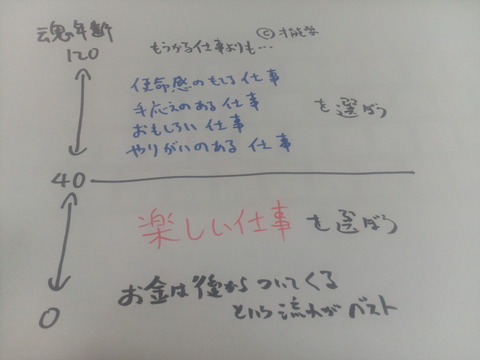 魂の年齢
© 才能学
120
もうかる仕事よりも…
使命感のもてる仕事
手応えのある仕事
おもしろい仕事
やりがいのある仕事
を選ぼう
40
楽しい仕事を選ぼう
お金は後からついてくる
という流れがベスト
0